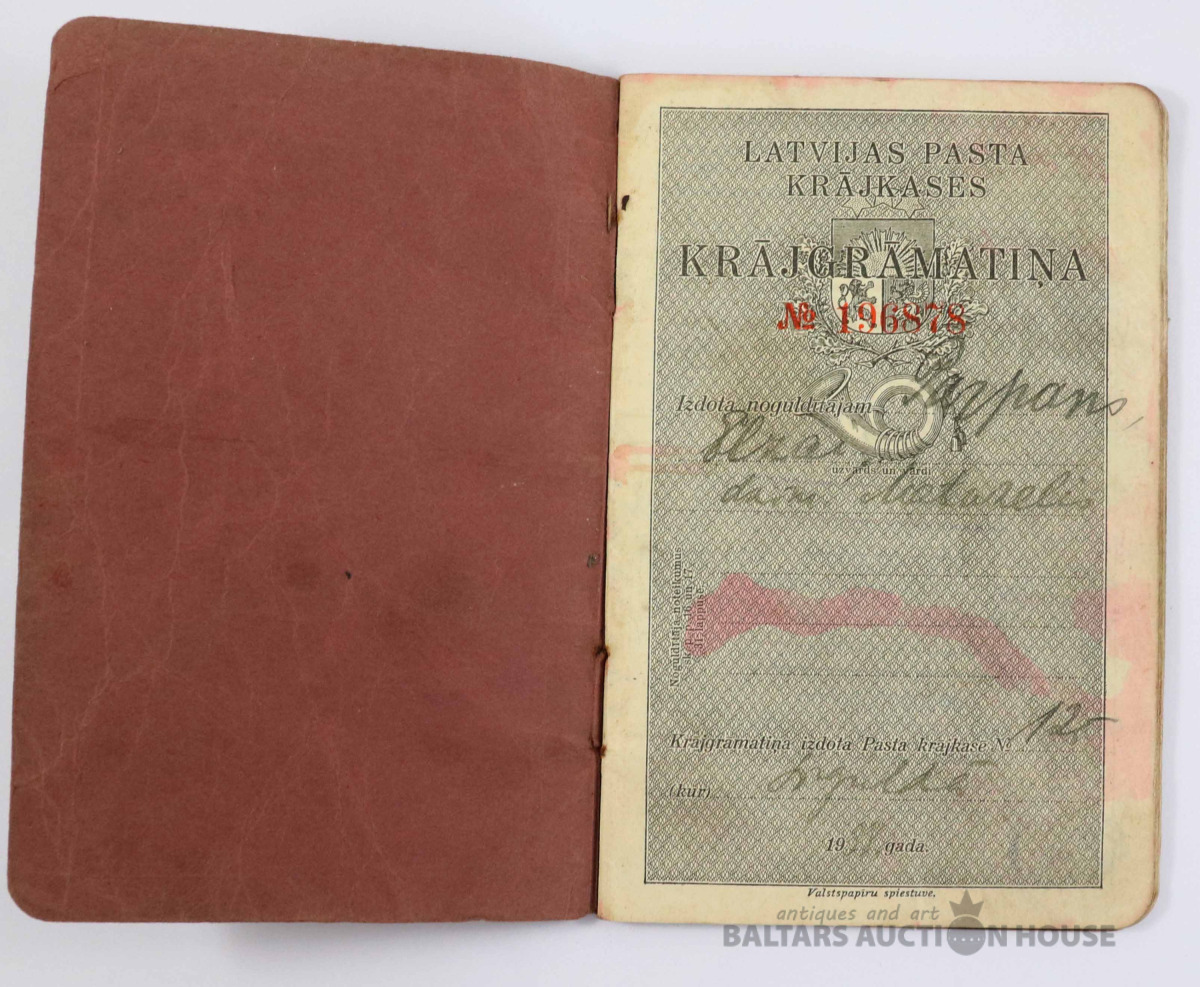 LATVIJAS PASTA
KRĀJKASES
KRĀJGRĀMATIŅA
№ 196878
Izdota noguldītājam
uzvārds un vārds
Noguldītāja noteikumus
sk. š. gr. 16. un 17.
lappusē.
Krājgrāmatiņa izdota Pasta krājkasē № 12
(kur) Siguldā
19 gada.
Valstspapīru spiestuve.
antiques and art
BALTARS AUCTION HOUSE